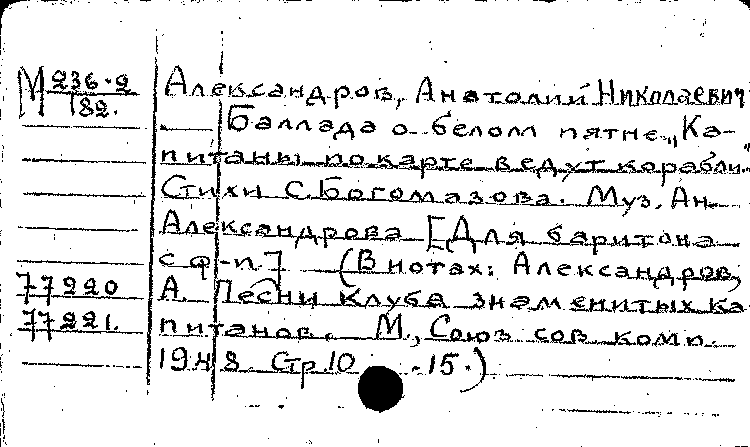 М 236·2
182.
Александров, Анатолий Николаевич
Баллада о белом пятне. „Ка-
питаны по карте ведут корабли..."
Стихи С. Богомазова. Муз. Ан.
Александрова [Для баритона
с ф-п] (В нотах: Александров,
77220 А. Песни клуба знаменитых ка
77221. питанов. М., Союз сов комп.
1948. Стр 10 -15.)